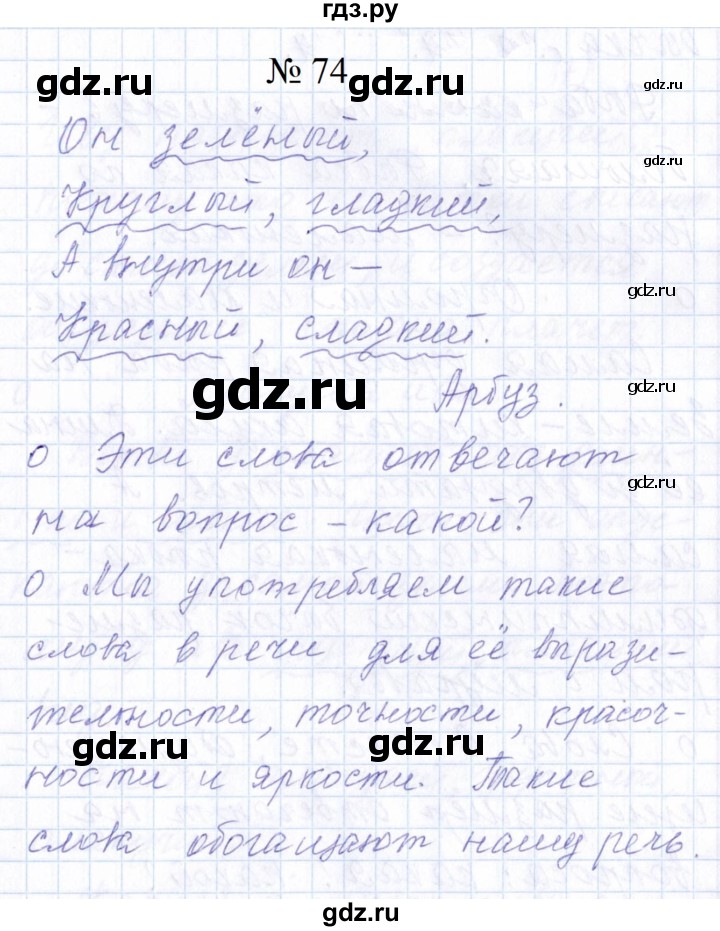 гдз.ру
№ 74
gdz.ru
gdz.ru
gdz.ru
Он зелёный,
gdz.ru
Круглый, гладкий,
А внутри он –
gdz.ru
Красный, сладкий.
gdz.ru
gdz.ru
Арбуз.
о Эти слова отвечают
gdz.ru
на вопрос – какой?
о Мы употребляем такие
слова в речи для её вырази-
тельности, точности, красоч-
gdz.ru
gdz.ru
ности и яркости. Такие
слова обогащают нашу речь.
gdz.ru